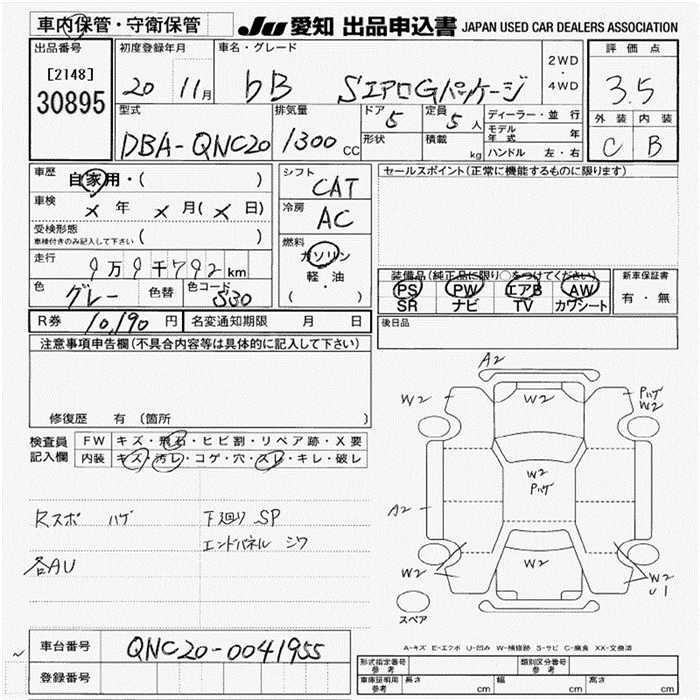 車内保管・守衛保管
JU 愛知 出品申込書 JAPAN USED CAR DEALERS ASSOCIATION
出品番号 初度登録年月 車名・グレード 2WD ・ 4WD 評価点
[2148]
30895 20 11月 bB SエアロGパッケージ 3.5
型式 排気量 ドア 5 定員 5人 ディーラー・並行 外装 内装
DBA-QNC20 1300cc 形状 積載 kg モデル年式 年 C B
ハンドル 左・右
車歴 自家用・( ) シフト CAT セールスポイント(正常に機能するものに限ります)
車検 x年 x月(x日) 冷房 AC
受検形態 ( )
車検付きのみ記入して下さい
走行 9万9千792km 燃料 ガソリン
軽・油
( )
色 グレー 色替 色コード S30
装備品(純正品に限り○をつけてください) 新車保証書
PS PW エアB AW 有・無
SR ナビ TV カワシート
R券 10,190円 名変通知期限 月 日 後日品
注意事項申告欄(不具合内容等は具体的に記入して下さい)
修復歴 有 (箇所 )
検査員記入欄 FW キズ・飛石・ヒビ割・リペア跡・X要
内装 キズ・汚レ・コゲ・穴・スレ・キレ・破レ
Rスポ ハゲ 下廻り SP
エンドパネル シワ
各AU
A2
W2 W2 Pハゲ
W2
W2
Pハゲ
A2
W2 W2 W2
U1
スペア
A-キズ E-エクボ U-凹み W-補修跡 S-サビ C-腐食 XX-交換済
車台番号 QNC20-0041955
登録番号
形式指定番号 参考 類別区分番号 参考
車庫証明用 参考 長さ cm 幅 cm 高さ cm